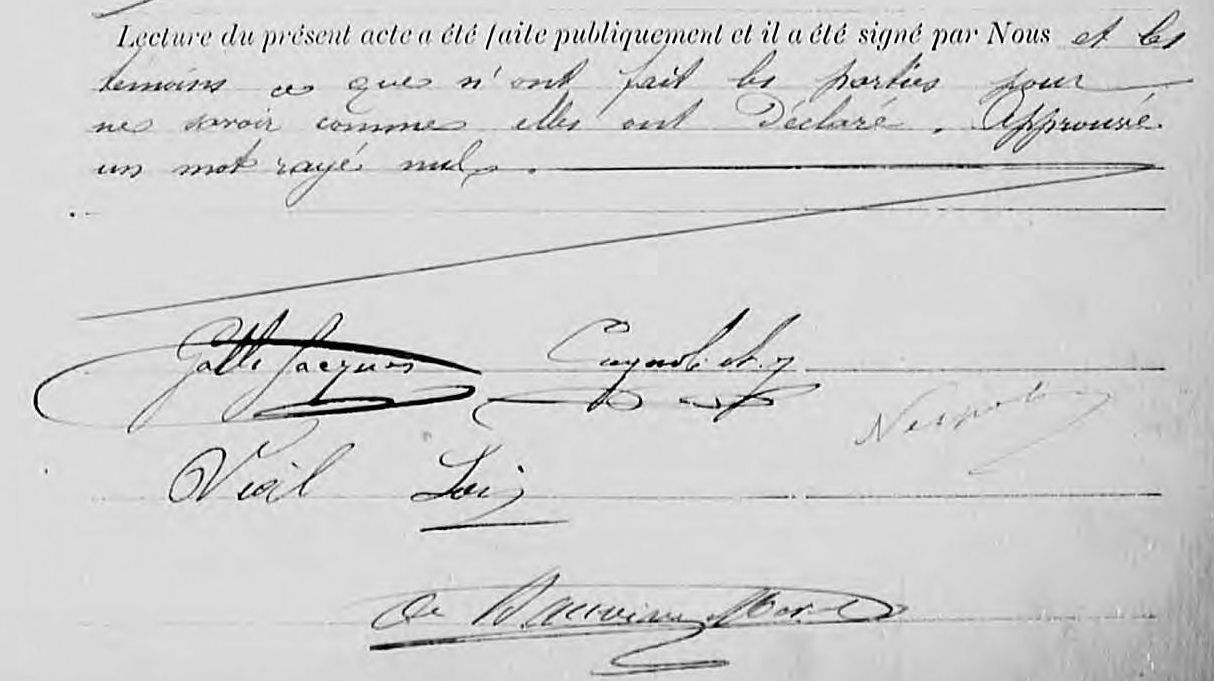 Lecture du présent acte a été faite publiquement et il a été signé par Nous et les
témoins ce que n'ont fait les parties pour
ne savoir comme elles ont Déclaré. Approuvé
un mot rayé nul.
Galli Jacques
Vial